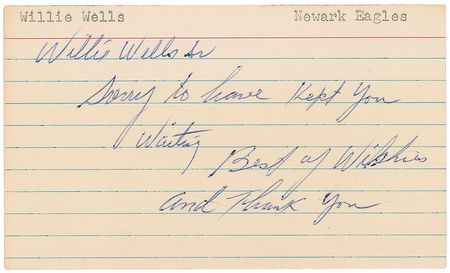 Willie Wells Newark Eagles
Willie Wells Sr
Sorry to have Kept You
Waiting
Best of Wishes
and Thank You